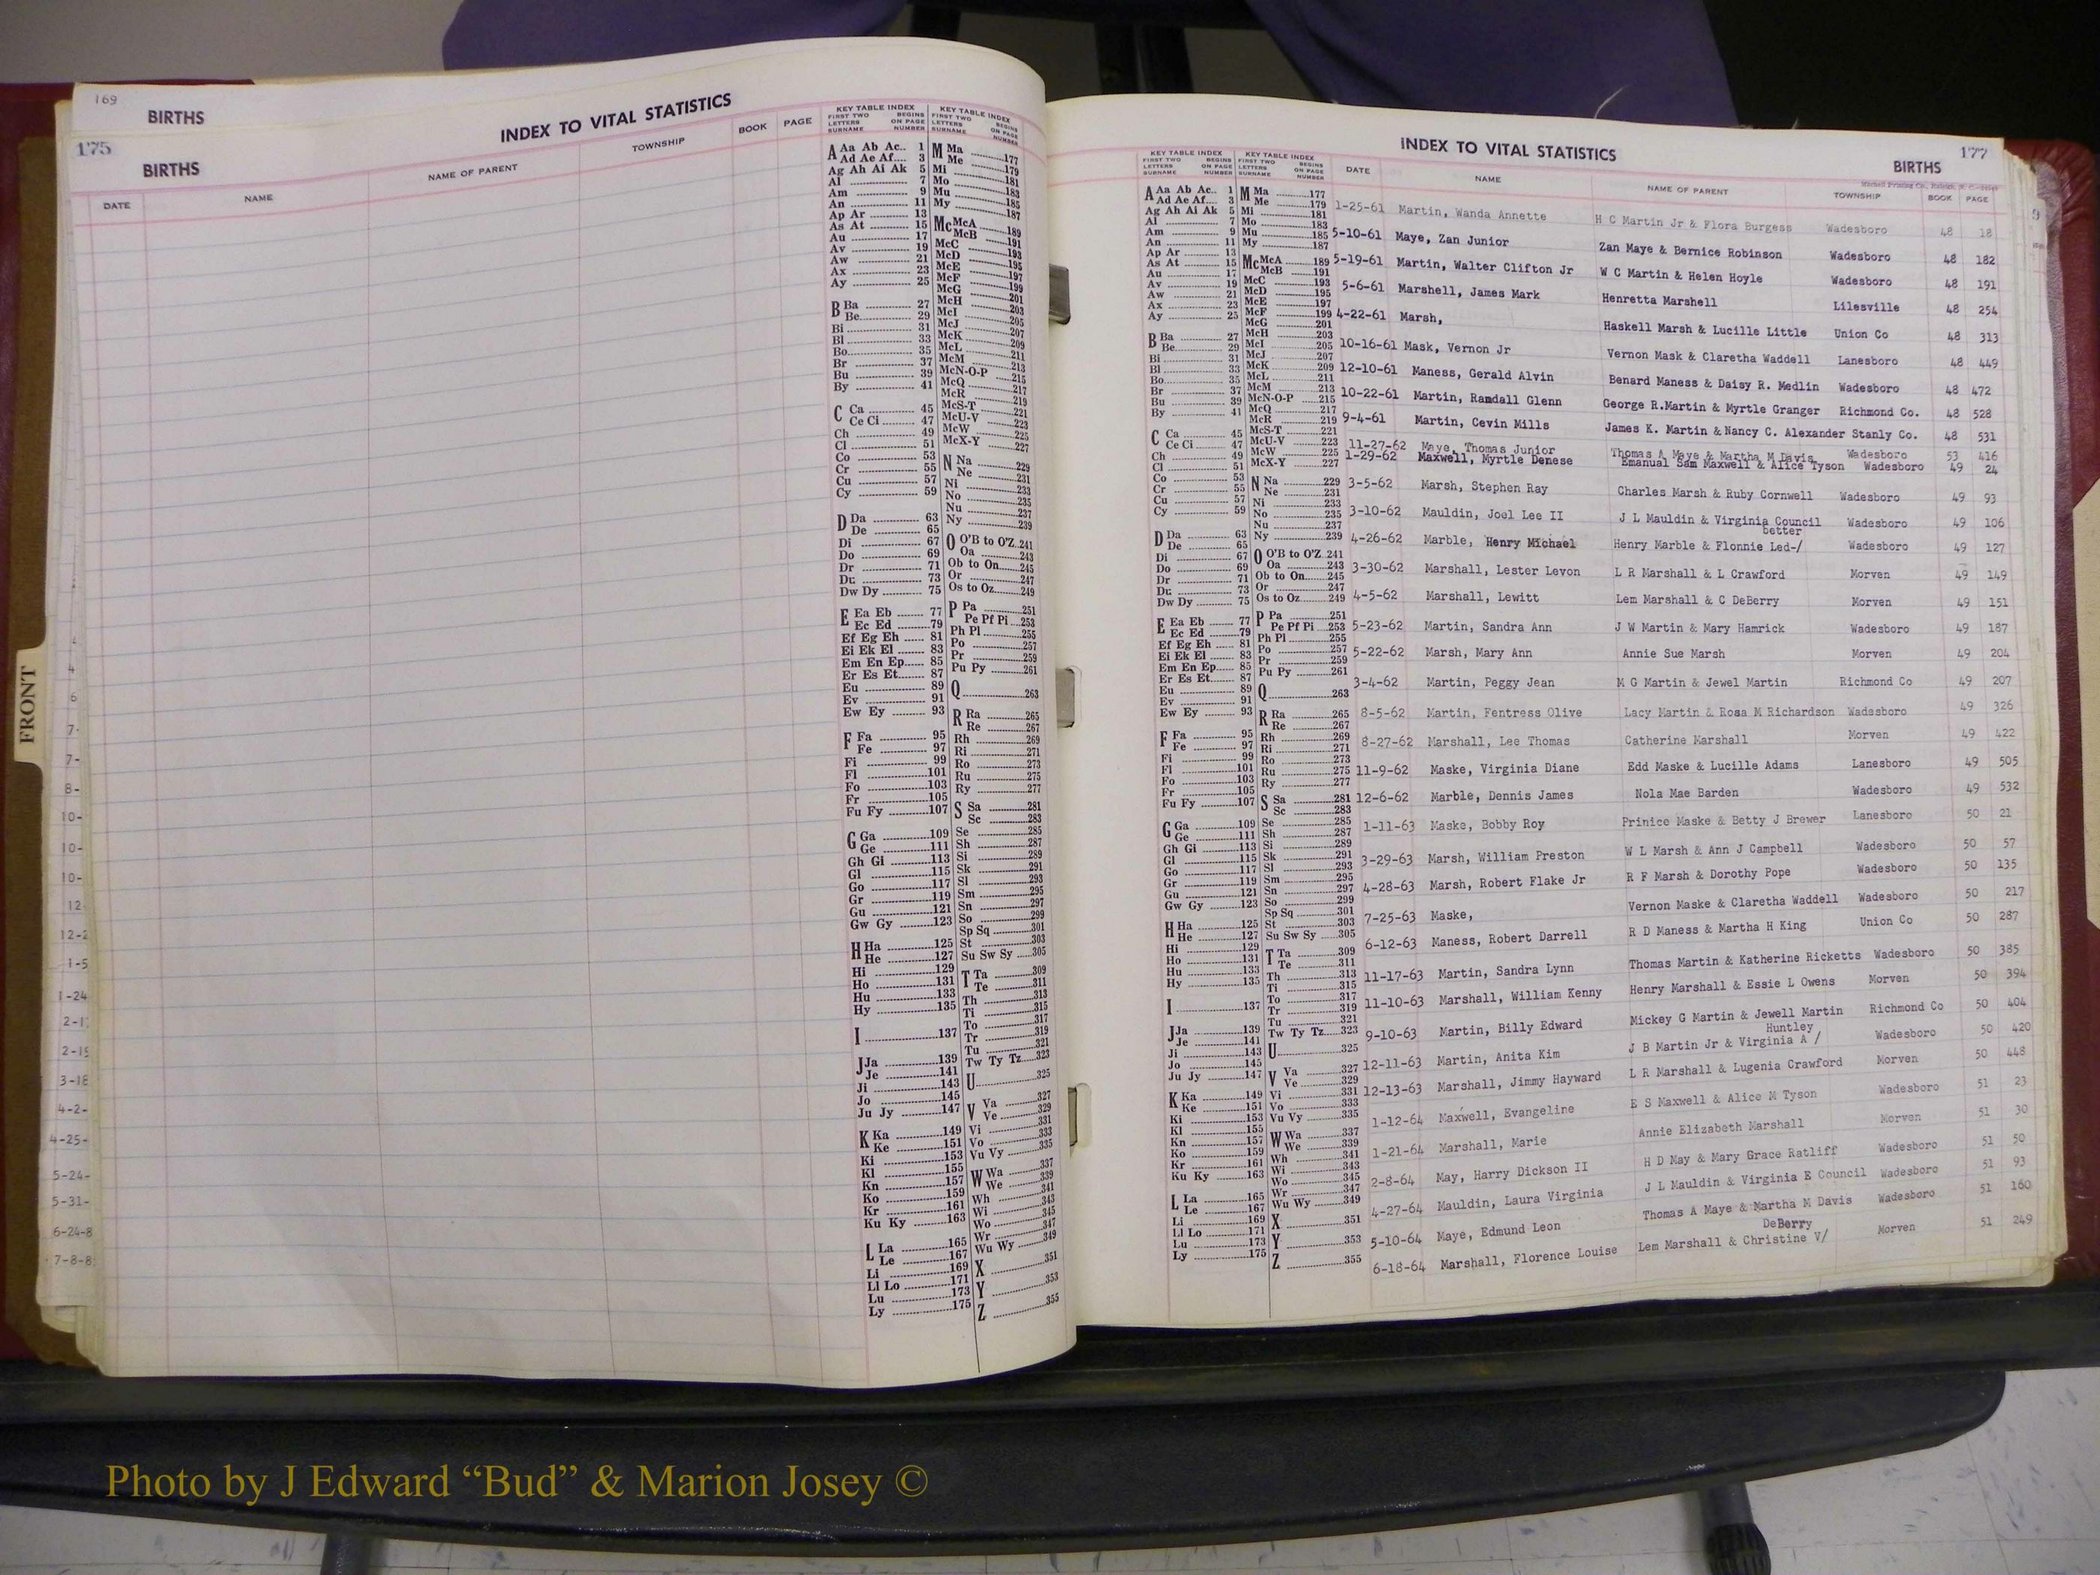 169
BIRTHS
175
BIRTHS
INDEX TO VITAL STATISTICS
DATE NAME NAME OF PARENT TOWNSHIP BOOK PAGE
KEY TABLE INDEX KEY TABLE INDEX
FIRST TWO LETTERS SURNAME BEGINS ON PAGE NUMBER FIRST TWO LETTERS SURNAME BEGINS ON PAGE NUMBER
A Aa Ab Ac.. 1 M Ma 177
Ad Ae Af.... 3 Me 179
Ag Ah Ai Ak 5 Mi 181
Al 7 Mo 183
Am 9 Mu 185
An 11 My 187
Ap Ar 13
As At 15 Mc McA 189
Au 17 McB 191
Av 19 McC 193
Aw 21 McD 195
Ax 23 McE 197
Ay 25 McF 199
McG 201
B Ba 27 McH 203
Be 29 McI 205
Bi 31 McJ 207
Bl 33 McK 209
Bo 35 McL 211
Br 37 McM 213
Bu 39 McN-O-P 215
By 41 McQ 217
McR 219
C Ca 45 McS-T 221
Ce Ci 47 McU-V 223
Ch 49 McW 225
Cl 51 McX-Y 227
Co 53 N Na 229
Cr 55 Ne 231
Cu 57 Ni 233
Cy 59 No 235
Nu 237
D Da 63 Ny 239
De 65
Di 67 O O'B to O'Z 241
Do 69 Oa 243
Dr 71 Ob to On 245
Du 73 Or 247
Dw Dy 75 Os to Oz 249
E Ea Eb 77 P Pa 251
Ec Ed 79 Pe Pf Pi 253
Ef Eg Eh 81 Ph Pl 255
Ei Ek El 83 Po 257
Em En Ep 85 Pr 259
Er Es Et 87 Pu Py 261
Eu 89
Ev 91 Q 263
Ew Ey 93
R Ra 265
Re 267
F Fa 95 Rh 269
Fe 97 Ri 271
Fi 99 Ro 273
Fl 101 Ru 275
Fo 103 Ry 277
Fr 105
Fu Fy 107 S Sa 281
Sc 283
G Ga 109 Se 285
Ge 111 Sh 287
Gh Gi 113 Si 289
Gl 115 Sk 291
Go 117 Sl 293
Gr 119 Sm 295
Gu 121 Sn 297
Gw Gy 123 So 299
Sp Sq 301
H Ha 125 St 303
He 127 Su Sw Sy 305
Hi 129
Ho 131 T Ta 309
Hu 133 Te 311
Hy 135 Th 313
Ti 315
I 137 To 317
Tr 319
J Ja 139 Tu 321
Je 141 Tw Ty Tz 323
Ji 143
Jo 145 U 325
Ju Jy 147
V Va 327
K Ka 149 Ve 329
Ke 151 Vi 331
Ki 153 Vo 333
Kl 155 Vu Vy 335
Kn 157
Ko 159 W Wa 337
Kr 161 We 339
Ku Ky 163 Wh 341
Wi 343
L La 165 Wo 345
Le 167 Wr 347
Li 169 Wu Wy 349
Ll Lo 171 X 351
Lu 173 Y 353
Ly 175 Z 355
FRONT
INDEX TO VITAL STATISTICS
177
BIRTHS
DATE NAME NAME OF PARENT TOWNSHIP BOOK PAGE
1-25-61 Martin, Wanda Annette H C Martin Jr & Flora Burgess Wadesboro 48 18
5-10-61 Maye, Zan Junior Zan Maye & Bernice Robinson Wadesboro 48 182
5-19-61 Martin, Walter Clifton Jr W C Martin & Helen Hoyle Wadesboro 48 191
5-6-61 Marshell, James Mark Henretta Marshell Lilesville 48 254
4-22-61 Marsh, Haskell Marsh & Lucille Little Union Co 48 313
10-16-61 Mask, Vernon Jr Vernon Mask & Claretha Waddell Lanesboro 48 449
12-10-61 Maness, Gerald Alvin Benard Maness & Daisy R. Medlin Wadesboro 48 472
10-22-61 Martin, Ramdall Glenn George R.Martin & Myrtle Granger Richmond Co. 48 528
9-4-61 Martin, Cevin Mills James K. Martin & Nancy C. Alexander Stanly Co. 48 531
11-27-62 Maye, Thomas Junior Thomas A Maye & Martha M Davis Wadesboro 53 416
1-29-62 Maxwell, Myrtle Denese Emanual Sam Maxwell & Alice Tyson Wadesboro 49 24
3-5-62 Marsh, Stephen Ray Charles Marsh & Ruby Cornwell Wadesboro 49 93
3-10-62 Mauldin, Joel Lee II J L Mauldin & Virginia Council Wadesboro 49 106
better
4-26-62 Marble, Henry Michael Henry Marble & Flonnie Led-/ Wadesboro 49 127
3-30-62 Marshall, Lester Levon L R Marshall & L Crawford Morven 49 149
4-5-62 Marshall, Lewitt Lem Marshall & C DeBerry Morven 49 151
5-23-62 Martin, Sandra Ann J W Martin & Mary Hamrick Wadesboro 49 187
5-22-62 Marsh, Mary Ann Annie Sue Marsh Morven 49 204
3-4-62 Martin, Peggy Jean M G Martin & Jewel Martin Richmond Co 49 207
8-5-62 Martin, Fentress Olive Lacy Martin & Rosa M Richardson Wadesboro 49 326
8-27-62 Marshall, Lee Thomas Catherine Marshall Morven 49 422
11-9-62 Maske, Virginia Diane Edd Maske & Lucille Adams Lanesboro 49 505
12-6-62 Marble, Dennis James Nola Mae Barden Wadesboro 49 532
1-11-63 Maske, Bobby Roy Prinice Maske & Betty J Brewer Lanesboro 50 21
3-29-63 Marsh, William Preston W L Marsh & Ann J Campbell Wadesboro 50 57
4-28-63 Marsh, Robert Flake Jr R F Marsh & Dorothy Pope Wadesboro 50 135
7-25-63 Maske, Vernon Maske & Claretha Waddell Wadesboro 50 217
6-12-63 Maness, Robert Darrell R D Maness & Martha H King Union Co 50 287
11-17-63 Martin, Sandra Lynn Thomas Martin & Katherine Ricketts Wadesboro 50 385
11-10-63 Marshall, William Kenny Henry Marshall & Essie L Owens Morven 50 394
9-10-63 Martin, Billy Edward Mickey G Martin & Jewell Martin Richmond Co 50 404
Huntley
12-11-63 Martin, Anita Kim J B Martin Jr & Virginia A / Wadesboro 50 420
12-13-63 Marshall, Jimmy Hayward L R Marshall & Lugenia Crawford Morven 50 448
1-12-64 Maxwell, Evangeline E S Maxwell & Alice M Tyson Wadesboro 51 23
1-21-64 Marshall, Marie Annie Elizabeth Marshall Morven 51 30
2-8-64 May, Harry Dickson II H D May & Mary Grace Ratliff Wadesboro 51 50
4-27-64 Mauldin, Laura Virginia J L Mauldin & Virginia E Council Wadesboro 51 93
5-10-64 Maye, Edmund Leon Thomas A Maye & Martha M Davis Wadesboro 51 160
DeBerry
6-18-64 Marshall, Florence Louise Lem Marshall & Christine V/ Morven 51 249
Photo by J Edward “Bud” & Marion Josey ©